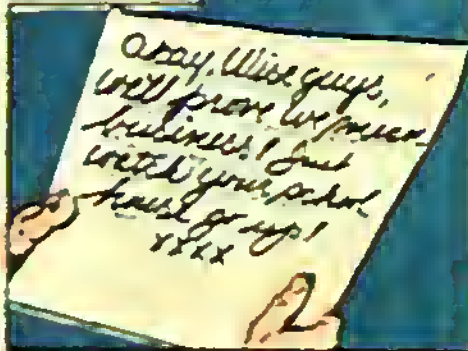 Okay, Wise guys,
we'll prove we mean
business! Just
watch your school
house go up!
xxxx